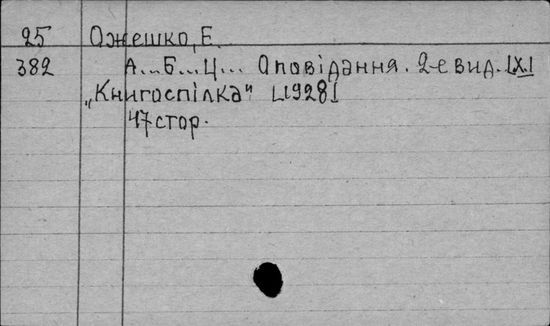 25 Ожешко, Е.
382 А...Б...Ц... Оповідання. 2-е вид. [Х.]
„Книгоспілка" [1928]
47 стор.